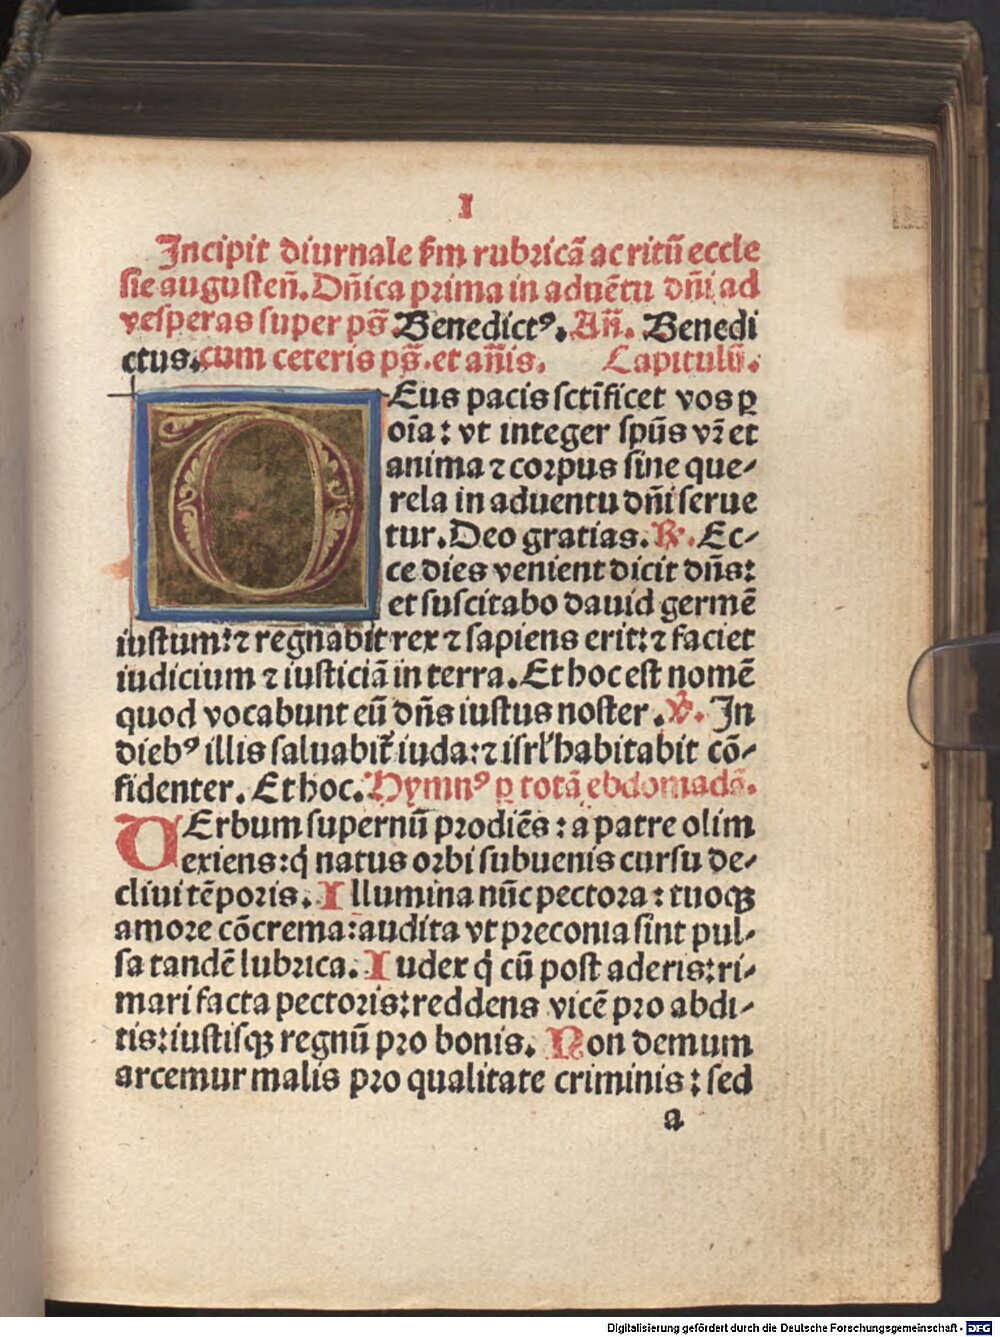 I
Incipit diurnale scḋm rubricā ac ritū eccle
sie augusteñ. Dñica prima in aduētu dñi ad
vesperas super pš. Benedictꝰ. Añ. Benedi
ctus. cum ceteris pš. et añis. Capitulū.
DEus pacis sctīficet vos ꝑ
oīa: vt integer spūs vr̄ et
anima ⁊ corpus sine que-
rela in aduentu dñi serue
tur. Deo gratias. ℟. Ec-
ce dies venient dicit dñs:
et suscitabo dauid germē
iustum: ⁊ regnabit rex ⁊ sapiens erit: ⁊ faciet
iudicium ⁊ iusticiā in terra. Et hoc est nomē
quod vocabunt eū dñs iustus noster. ℣. In
diebꝰ illis saluabit̄ iuda: ⁊ isrl̄ habitabit cō-
fidenter. Et hoc. Hymnꝰ ꝑ totā ebdomadā.
VErbum supernū prodiēs: a patre olim
exiens: q̇ natus orbi subuenis cursu de-
cliui tēporis. Illumina nūc pectora: tuoqꝫ
amore cōcrema: audita vt preconia sint pul-
sa tandē lubrica. Iudex q̇ cū post aderis: ri-
mari facta pectoris: reddens vicē pro abdi-
tis: iustisqꝫ regnū pro bonis. Non demum
arcemur malis pro qualitate criminis: sed
a
Digitalisierung gefördert durch die Deutsche Forschungsgemeinschaft - DFG